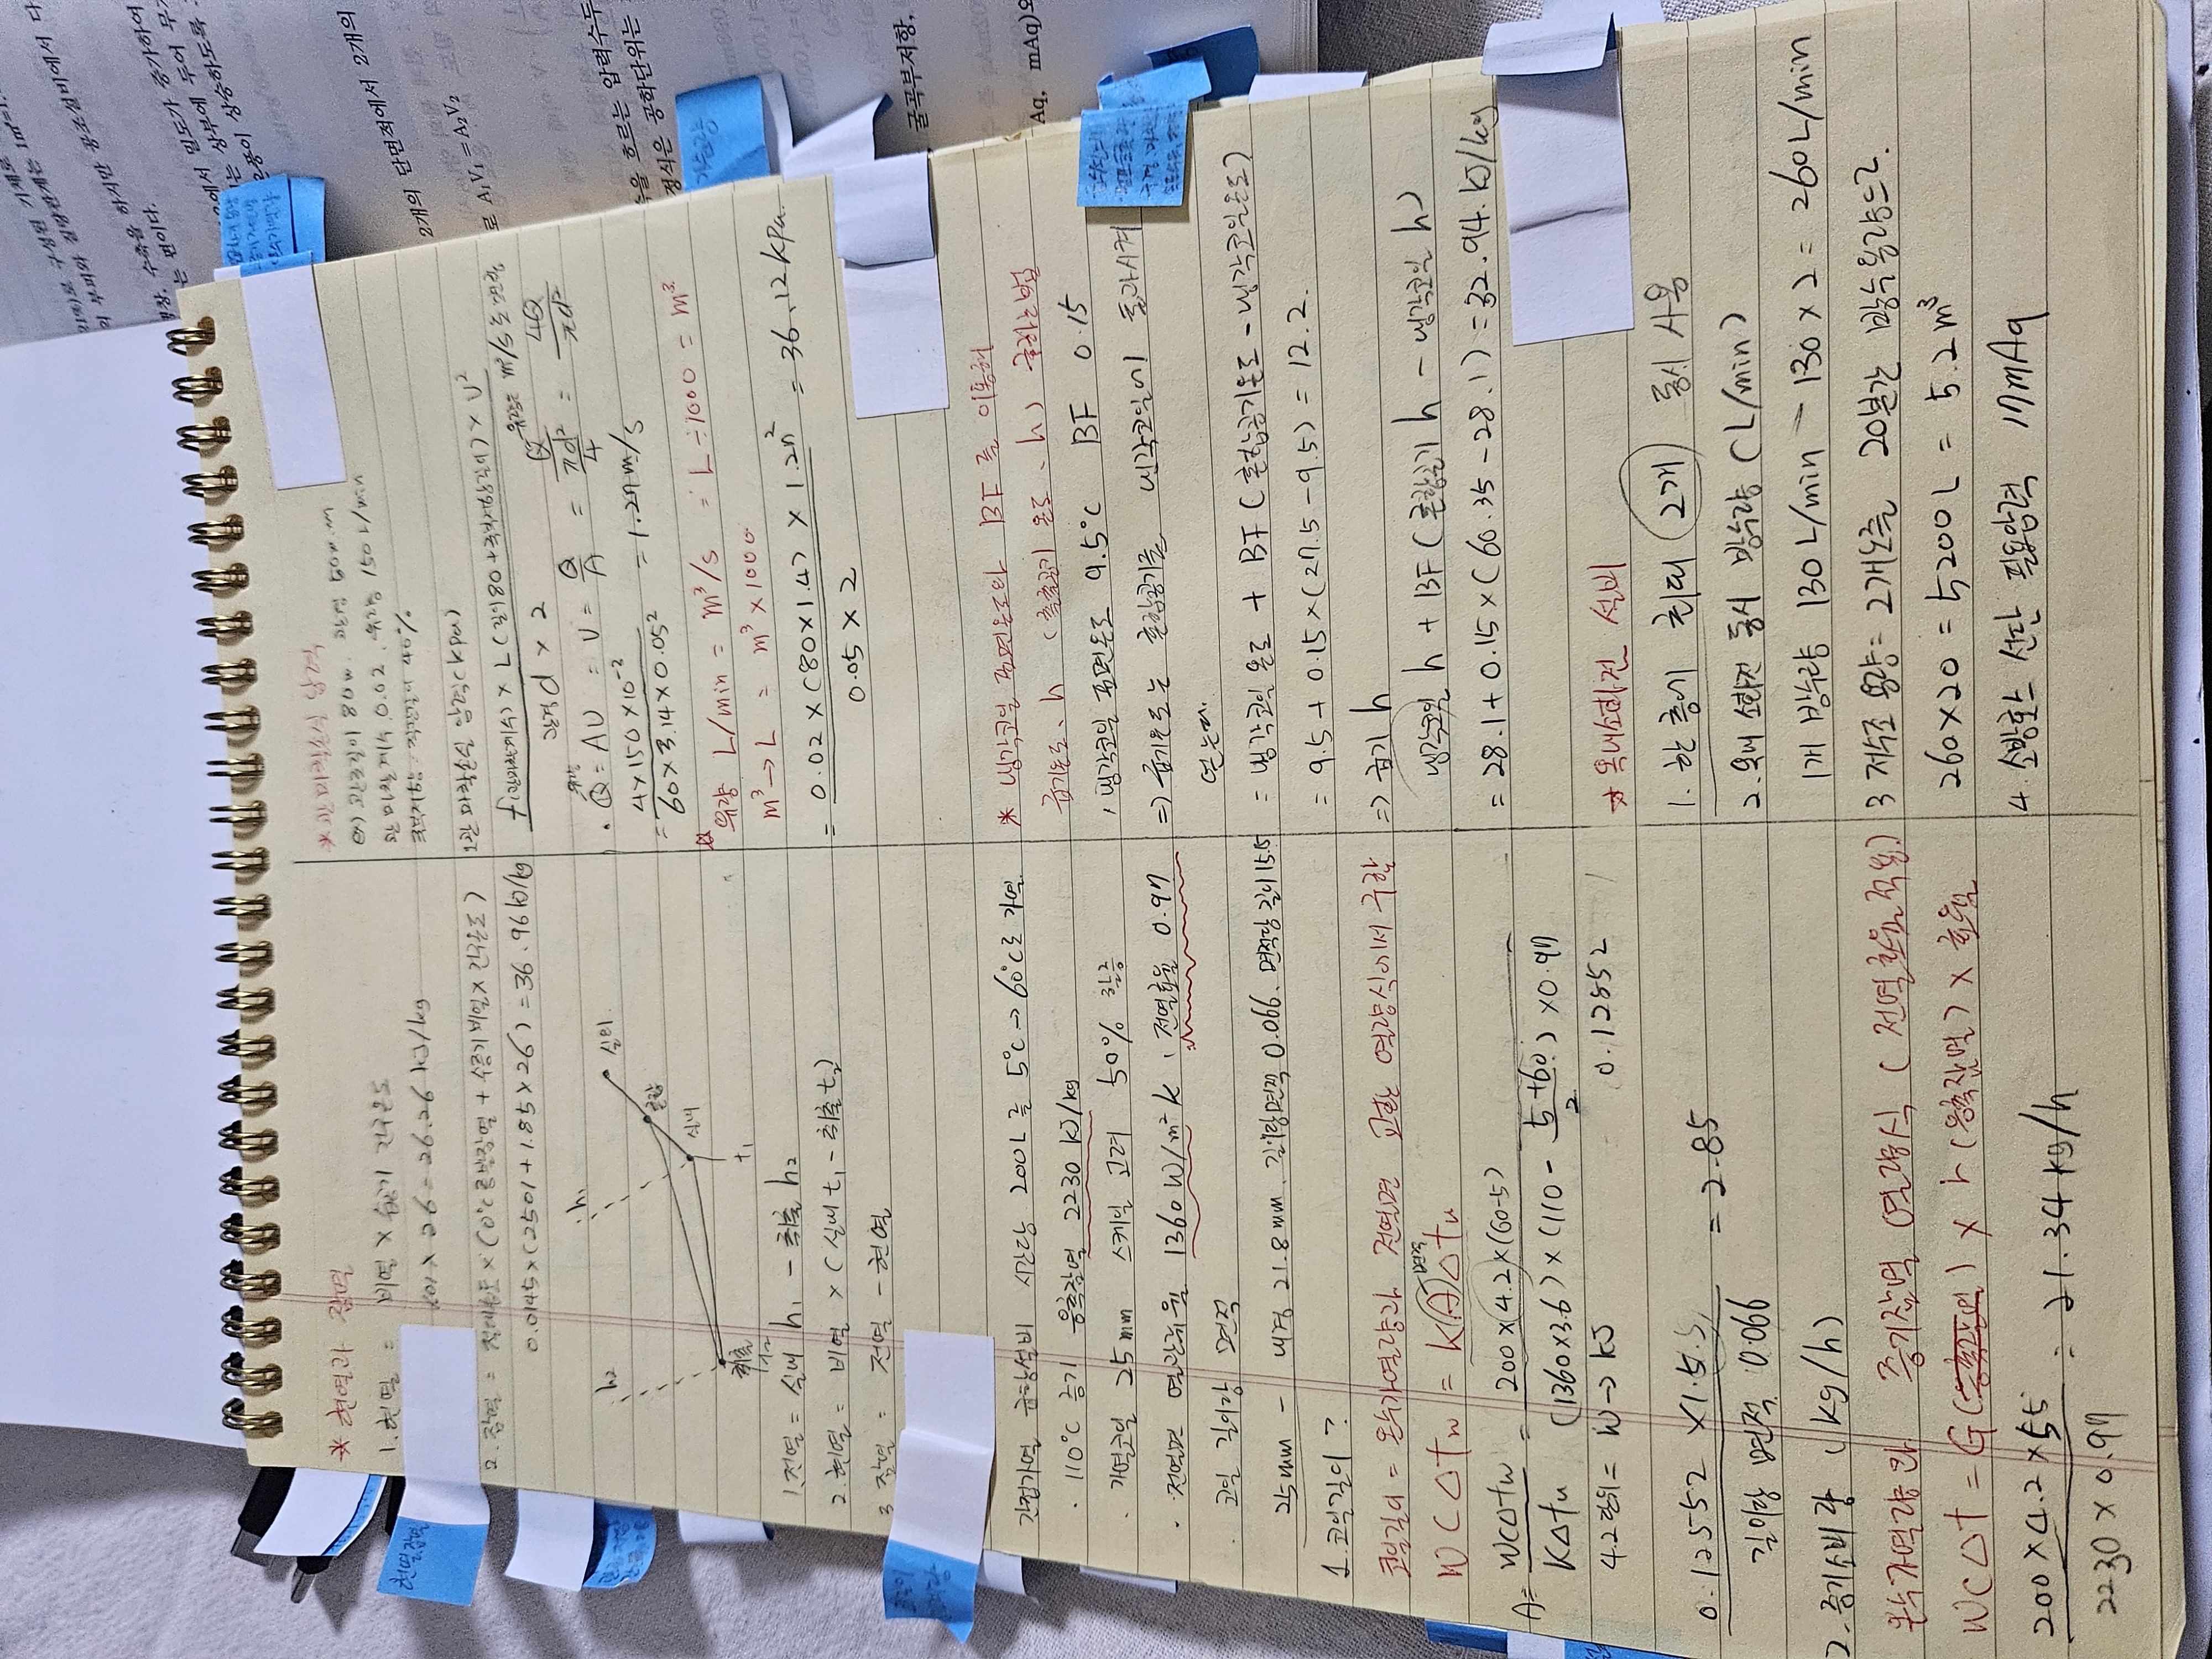 * 현열과 잠열
1. 현열 = 비열 × 습공기 건구온도
1.01 × 26 = 26.26 kJ/kg
2. 잠열 = 절대습도 × (0℃ 증발잠열 + 수증기비열 × 건구온도)
0.0145 × (2501 + 1.85 × 26) = 36.96 kJ/kg
h2
h1
실외
혼합
실내
취출
t2
t1
1 전열 = 실내 h1 - 취출 h2
2. 현열 = 비열 × (실내 t1 - 취출 t2)
3 잠열 = 전열 - 현열
간접가열 급탕설비 시간당 200L를 5℃→60℃로 가열
· 110℃ 증기 응축잠열 2230 kJ/kg
· 가열코일 25mm 스케일 고려 50% 할증
· 전열면 열관류율 1360 W/m²K, 전열효율 0.97
· 코일 길이당 면적
25mm - 내경 21.8mm. 길이당면적 0.066. 면적당 길이 15.5
1. 코일길이?
코일길이 = 온수가열량과 전열면 교환 열량식에서 구함
WC△tw = K(A)△tu
면적
A = WC△tw / K△tu = 200 × 4.2 × (60-5) / (1360×3.6) × (110 - 5+60/2) × 0.97
4.2 단위 = W → kJ
0.12552
0.12552 × 1.5 / 길이당 면적 0.066 = 2.85
2. 증기소비량 (kg/h)
온수가열량과 증기잠열 열량식 (전열효율적용)
WC△t = G() × r (응축잠열) × 효율
200 × 4.2 × 55 / 2230 × 0.97 = 21.34 kg/h
예) 관로길이 80m. 관경 50mm
관마찰계수 0.02, 유량 150L/min
국부저항: 직관의 40%
1관 마찰손실 압력 (kPa)
f(관마찰계수) × L(길이80+국부저항길이) × U²
관경 d × 2
· Q = AU = U = Q/A = Q/(πd²/4) = 4Q/πd²
유량은 m³/s로 변환
= 4×150×10⁻³ / 60×3.14×0.05² = 1.27m/s
유량 L/min = m³/s = L÷1000 = m³
m³→L = m³×1000
= 0.02 × (80×1.4) × 1.27² / 0.05 × 2 = 36.12 kPa.
* 냉각코일 표면온도와 BF를 이용해
급기온도, h (출구공기 온도, h) 구하는법
, 냉각코일 표면온도 9.5℃ BF 0.15
⇒ 급기온도는 혼합공기를 냉각코일이 통과시켜
얻는데.
= 냉각코일 온도 + BF (혼합공기온도 - 냉각코일온도)
= 9.5 + 0.15×(27.5-9.5) = 12.2.
⇒ 급기 h
냉각코일 h + BF (혼합공기 h - 냉각코일 h)
= 28.1 + 0.15×(60.35-28.1) = 32.94. kJ/kg
* 옥내소화전 설비
1. 한 층에 최대 2개 동시 사용
2. 옥내 소화전 동시 방수량 (L/min)
1개 방수량 130L/min - 130×2 = 260L/min
3 저수조 용량 = 2개노즐 20분간 방수용량으로.
260×20 = 5200L = 5.2m³
4. 소방호스 선단 필요압력 17mAq
2개의 단면적에서 2개의
로 A₁V₁ = A₂V₂
굴곡부저항,
Aq, mAq)의
현열잠열